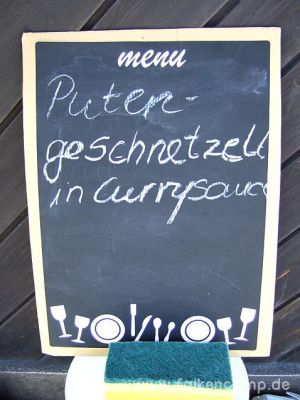 menu
Puten-
geschnetzell
in Currysauce
www.falkencamp.de